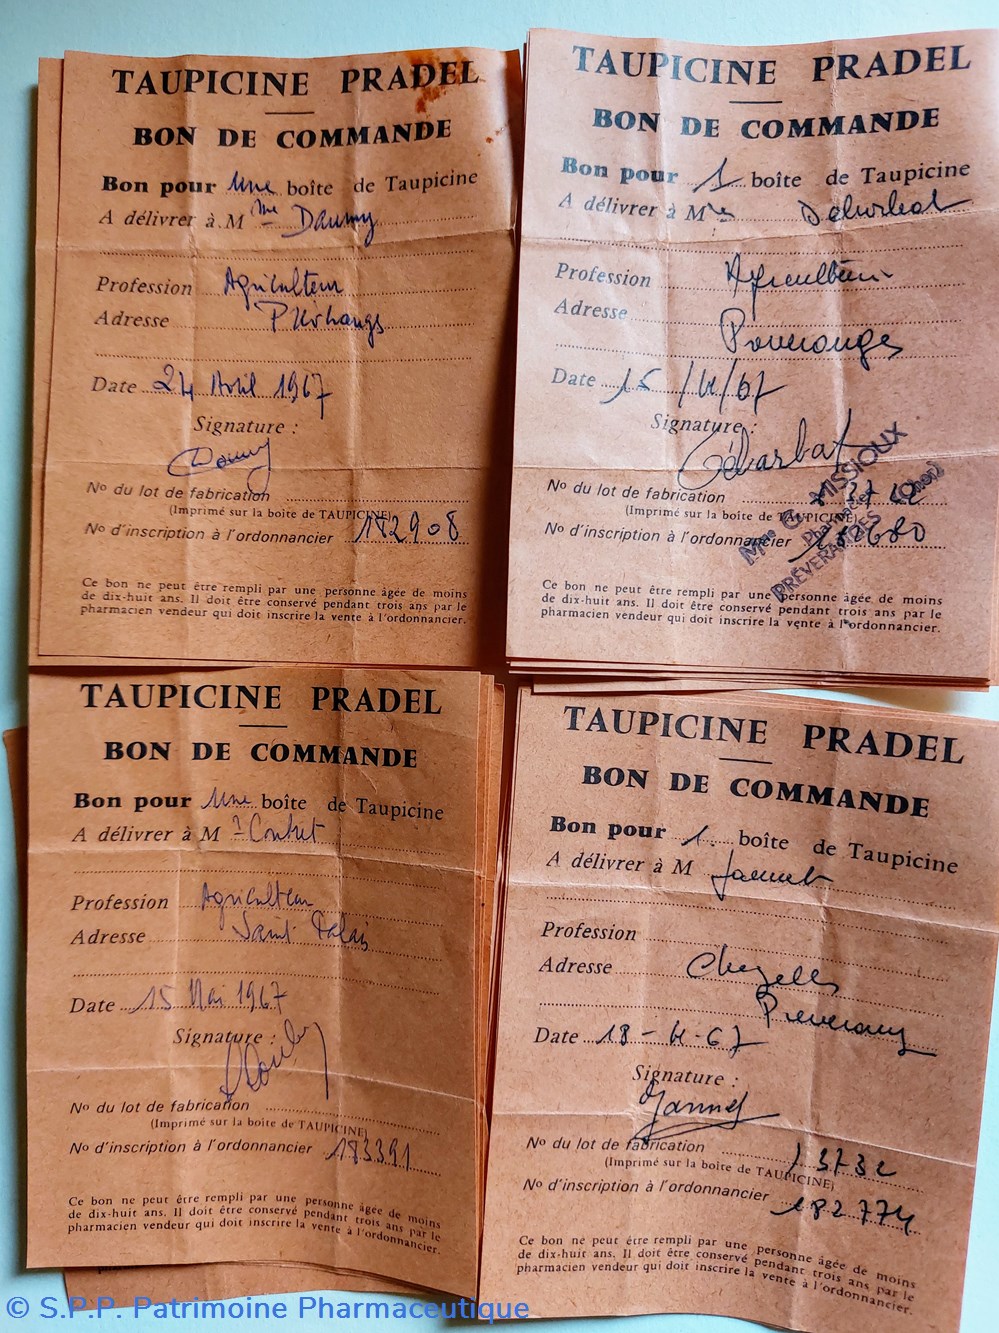 TAUPICINE PRADEL
BON DE COMMANDE
Bon pour Une boîte de Taupicine
A délivrer à M me Daumy
Profession Agriculteur
Adresse
Date 24 Avril 1967
Signature :
No du lot de fabrication
(Imprimé sur la boîte de TAUPICINE)
No d'inscription à l'ordonnancier 182908
Ce bon ne peut être rempli par une personne âgée de moins
de dix-huit ans. Il doit être conservé pendant trois ans par le
pharmacien vendeur qui doit inscrire la vente à l'ordonnancier.
TAUPICINE PRADEL
BON DE COMMANDE
Bon pour 1 boîte de Taupicine
A délivrer à M Debarbat
Profession Agriculteur
Adresse Preveranges
Date 15/4/67
Signature :
Débarbat
No du lot de fabrication
(Imprimé sur la boîte de TAUPICINE)
No d'inscription à l'ordonnancier 182680
Mme G. MISSIOUX
Pharmacie
PRÉVERANGES (Cher)
Ce bon ne peut être rempli par une personne âgée de moins
de dix-huit ans. Il doit être conservé pendant trois ans par le
pharmacien vendeur qui doit inscrire la vente à l'ordonnancier.
TAUPICINE PRADEL
BON DE COMMANDE
Bon pour Une boîte de Taupicine
A délivrer à M
Profession Agriculteur
Adresse Saint Palais
Date 15 Mai 1967
Signature :
No du lot de fabrication
(Imprimé sur la boîte de TAUPICINE)
No d'inscription à l'ordonnancier 183391
Ce bon ne peut être rempli par une personne âgée de moins
de dix-huit ans. Il doit être conservé pendant trois ans par le
pharmacien vendeur qui doit inscrire la vente à l'ordonnancier.
TAUPICINE PRADEL
BON DE COMMANDE
Bon pour 1 boîte de Taupicine
A délivrer à M Jannet
Profession
Adresse Chezelles
Preveranges
Date 18-4-67
Signature :
Jannet
No du lot de fabrication 13732
(Imprimé sur la boîte de TAUPICINE)
No d'inscription à l'ordonnancier 182774
Ce bon ne peut être rempli par une personne âgée de moins
de dix-huit ans. Il doit être conservé pendant trois ans par le
pharmacien vendeur qui doit inscrire la vente à l'ordonnancier.
© S.P.P. Patrimoine Pharmaceutique